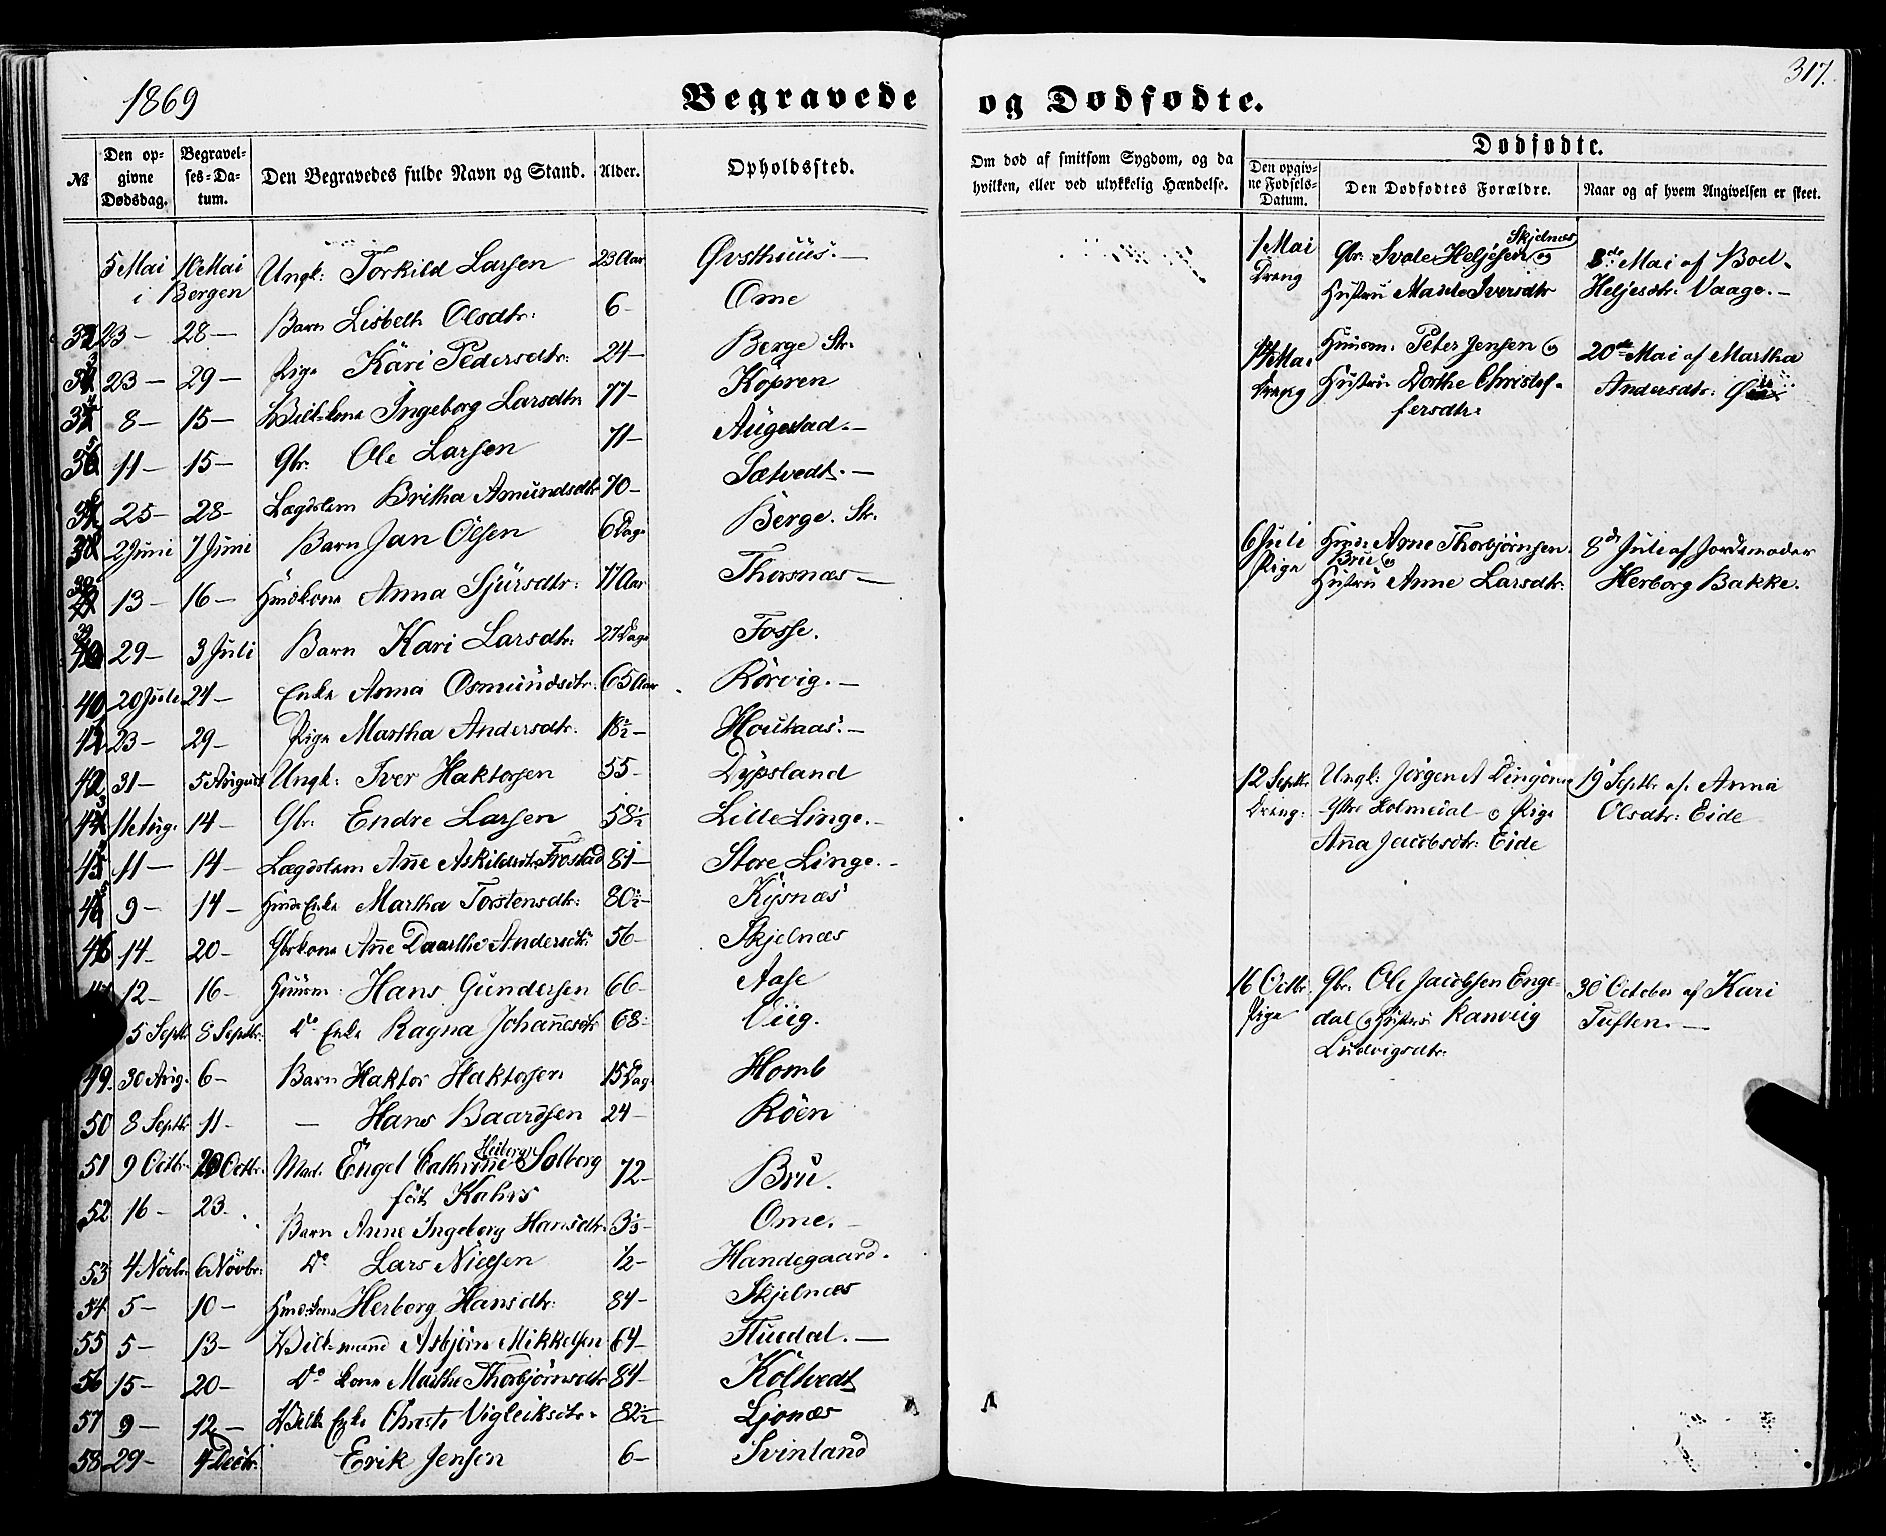 1869
Begravede
og Dødfødte.
317.
№
Den opgivne Dødsdag.
Begravelses-Datum.
Den Begravedes fulde Navn og Stand.
Alder.
Opholdssted.
Om død af smitsom Sygdom, og da hvilken, eller ved ulykkelig Hændelse.
Dødfødte.
Den opgivne Fødsels-Datum.
Den Dødfødtes Forældre.
Naar og af hvem Angivelsen er skeet.
5 Mai i 10 Mai Bergen Ungk: Torkild Larsen 23 Aar Øvsthuus.—
23— 28— Barn Lisbeth Olsdtr: 6— Ome
23— 29— Pige Kari Pedersdtr: 24— Berge Str.
8— 15— Vilk-kone Ingeborg Larsdtr 77— Kopren
11— 15— Gbr. Ole Larsen 71— Augestad.—
25— 28— Lægdslem Britha Amundsdtr 70— Sætvedt.—
2 Juni 7 Juni Barn Jan Olsen 6 Dage Berge. Str.
13— 16— Huuskone Anna Sjursdtr: 77 Aar Thorsnæs—
29— 3 Juli Barn Kari Larsdtr: 27 Dage Fosse.
40 20 Juli 24— Enke Anna Osmundsdtr. 65 Aar Rörvig.—
23— 29— Pige Martha Andersdtr. 18½— Houkaas.—
42 31— 5 August Ungk: Iver Haktorsen 55— Dypsland
11 Aug. 14— Gbr. Endre Larsen 58½ Lille Linge.—
11— 14— Lægdslem Añe Askildsdtr Frostad 81— Store Linge.—
9— 14— Huus Enke Martha Torstensdtr: 80½— Kysnæs
46 14— 20— Gbrkone Añe Daarthe Andersdtr: 56— Skjelnæs
12— 16— Huusm. Hans Gundersen 66— Aase
5 Septbr 8 Septbr: Do Enke Ragna Johañesdtr 68— Viig.
49. 30 Aug. 6— Barn Haktor Haktorsen 15 Dag. Homb
50 8 Septbr 11— — Hans Baardsen 24— Röen
51 9 Octbr. 20 Octbr. Mad. Engel Cathrine Solberg
föd Kahrs 72— Bru.
52 16— 23— Barn Anne Ingeborg Hansdtr. 3⅓— Ome.—
53 4 Novbr. 6 Novbr: Do Lars Nielsen ½— Handegaard.
54 5— 10— Huuskone Herborg Hansdtr: 84— Skjelnæs
55 5— 13— Vilk-mand Asbjörn Mikkelsen 64— Fluedal.—
56 15— 20— Do kone Marthe Thorbjörnsdtr 81— Koltvedt
57 9— 12— Vilk Enke Christi Vigleiksdtr. 82½— Ljonæs
58 29— 4 Decbr. Erik Jensen 6— Svinland
1 Mai Dreng
Gbr. Svale Heljesen Skjelnæs og
Hustru Marthe Iversdtr
8de Mai af Boel
Heljesdtr. Vaage.—
14 Mai Dreng
Huusm. Peter Jensen og
Hustru Dorthe Christof-
fersdtr.
20de Mai af Martha
Andersdtr.
6 Juli Pige
Huusm: Arne Thorbjörnsen
Bru og
Hustru Anne Larsdtr.
8de Juli af Jordemoder
Herborg Bakke.
12 Septbr. Dreng:
Ungk: Jörgen A
Ystre Holmeial og Pige
Añna Jacobsdtr. Eide
19 Septbr. af. Anna
Olsdtr: Eide
16 Octbr. Pige
Gbr. Ole Jacobsen Enge-
dal og Hustru Ranveig
Ludvigsdtr.
30 October af Kari
Tuften.—